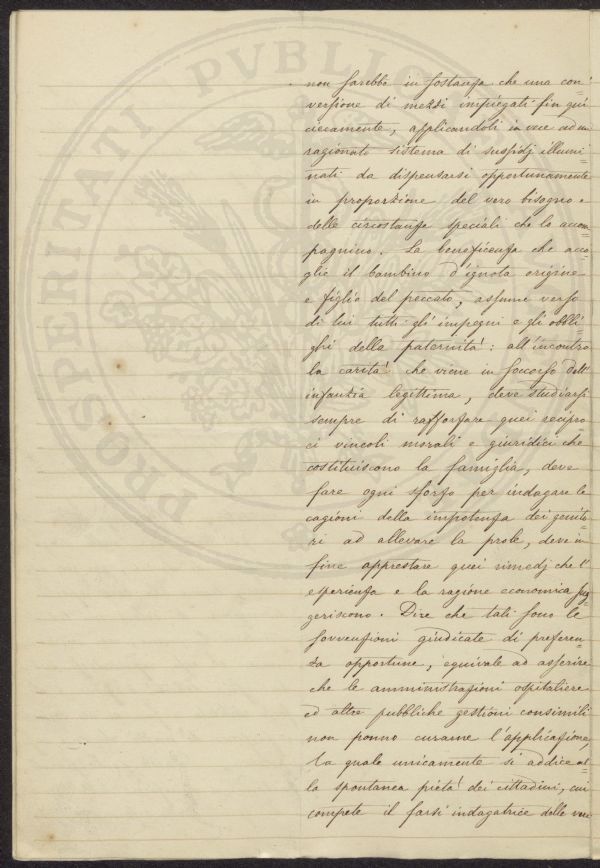 PROSPERITATI PVBLICAE
non sarebbe in sostanza che una con=
versione di mezzi impiegati fin qui
ciecamente, applicandoli in vece ad un
ragionato sistema di sussidj illumi=
nati da dispensarsi opportunamente
in proporzione del vero bisogno e
delle circostanze speciali che lo accom=
pagnino. La beneficenza che acco=
glie il bambino d'ignota origine
e figlio del peccato, assume verso
di lui tutti gl'impegni e gli obbli=
ghi della paternità: all'incontro
la carità che viene in soccorso dell'
infanzia legittima, deve studiarsi
sempre di rafforzare quei recipro=
ci vincoli morali e giuridici che
costituiscono la famiglia, deve
fare ogni sforzo per indagare le
cagioni della impotenza dei genito=
ri ad allevare la prole, deve in
fine apprestare quei rimedj che l'
esperienza e la ragione economica sug=
geriscono. Dire che tali sono le
sovvenzioni giudicate di preferen=
za opportune, equivale ad asserire
che le amministrazioni ospitaliere
ed altre pubbliche gestioni consimili
non ponno curarne l'applicazione,
la quale unicamente si addice al=
la spontanea pietà dei cittadini, cui
compete il farsi indagatrice delle vere